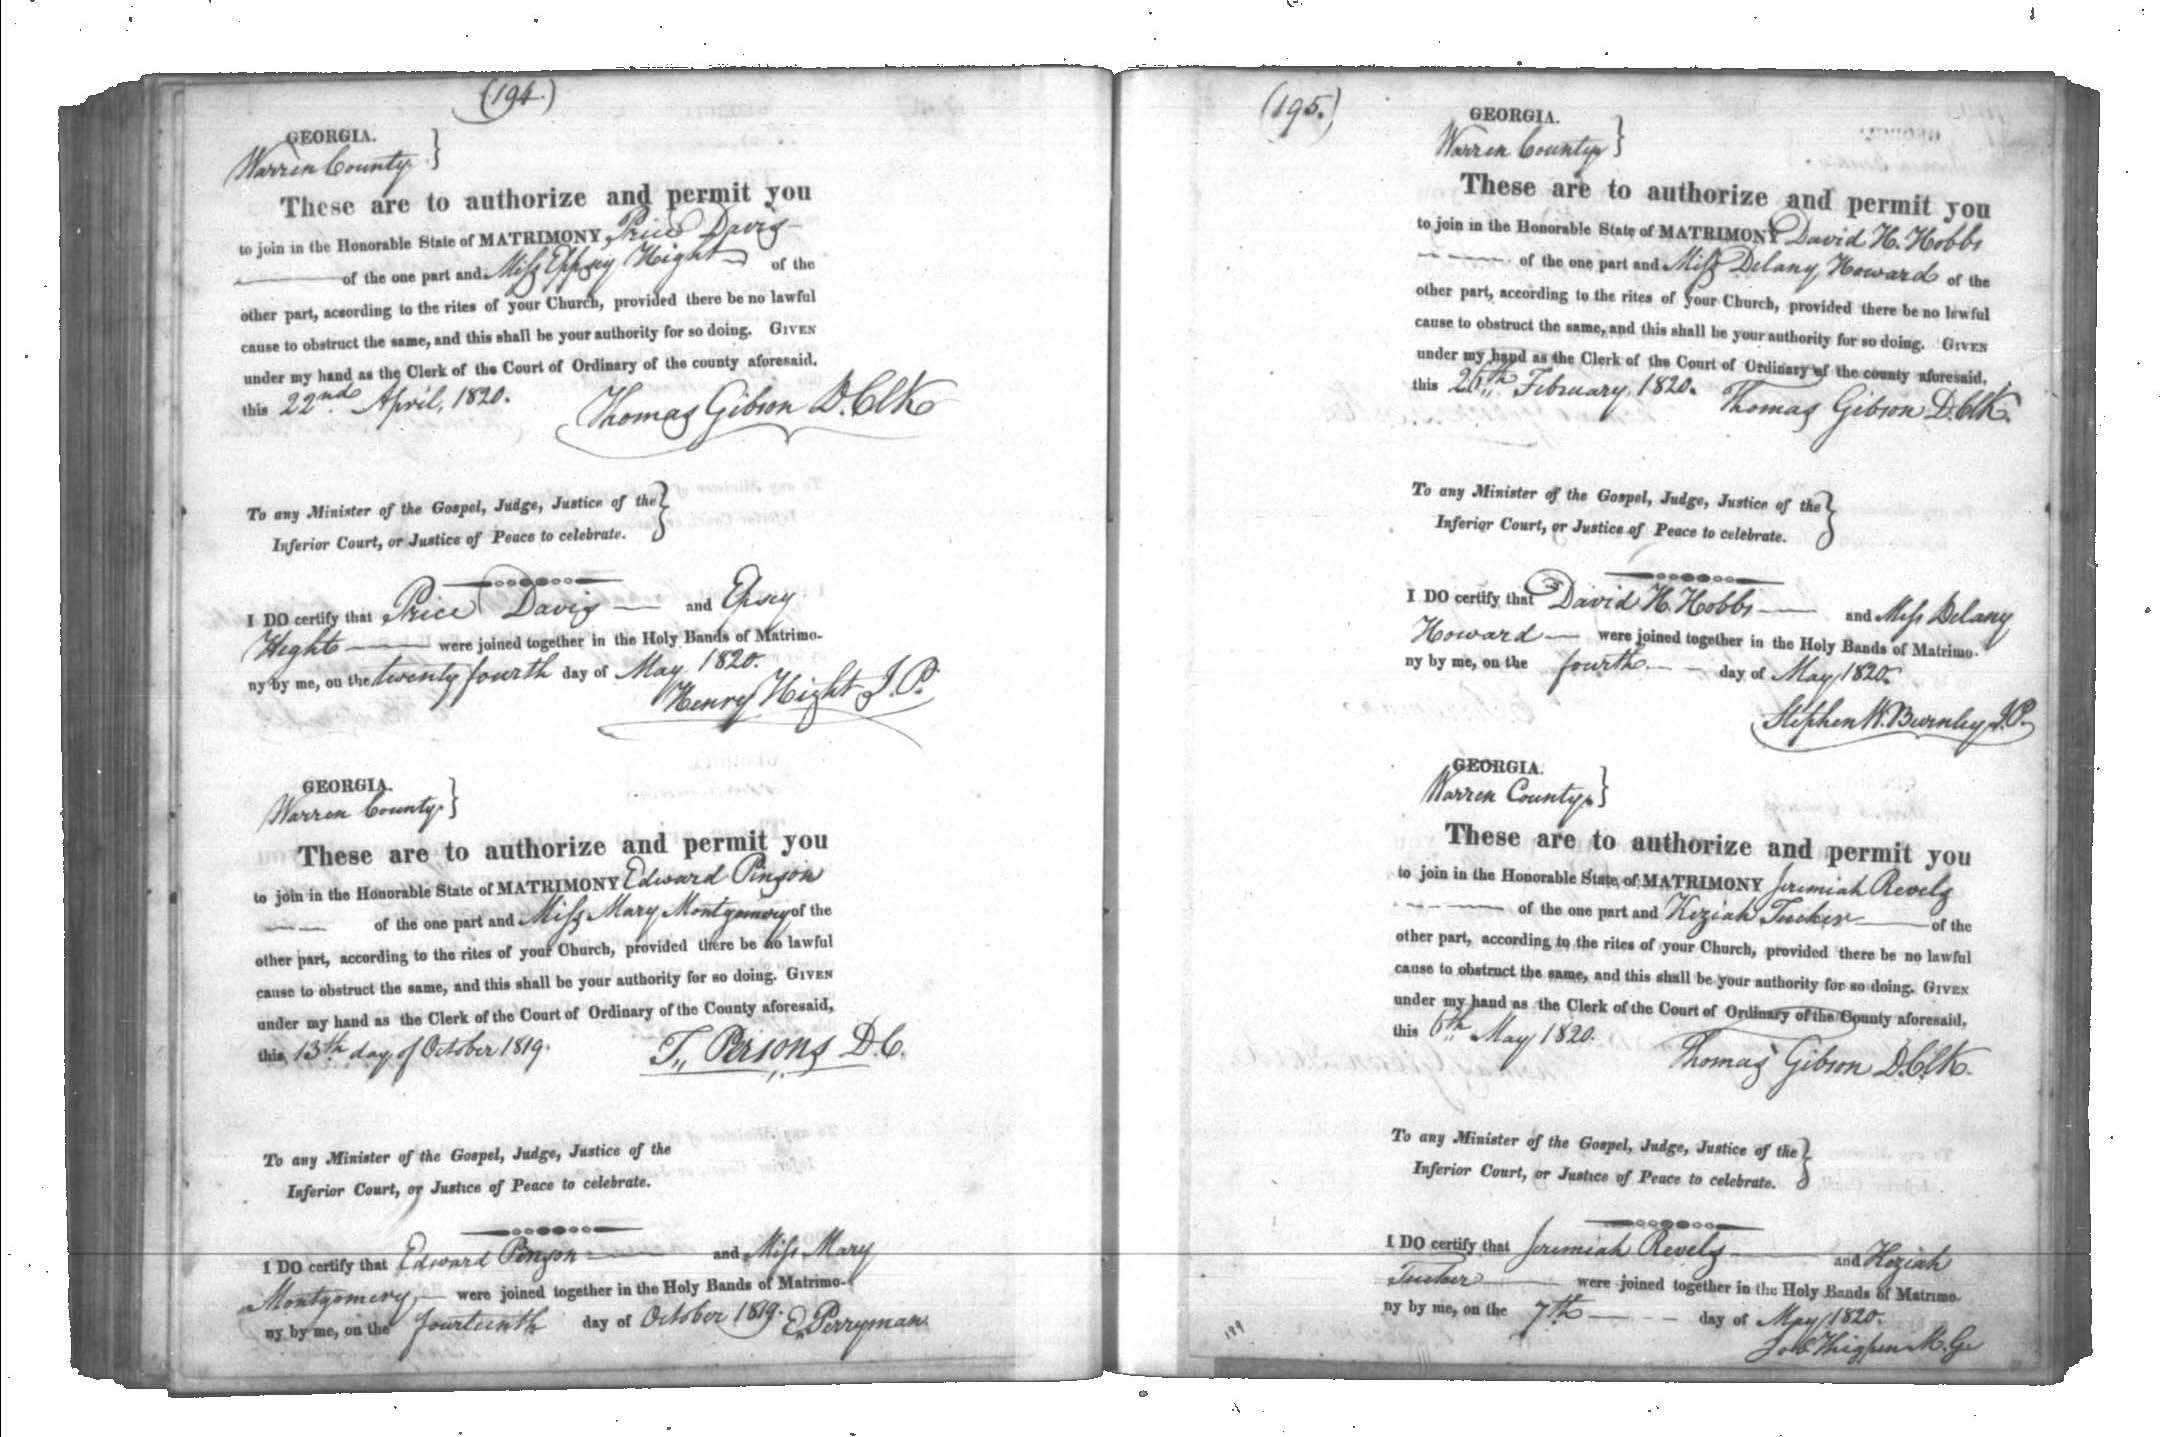 (194.)
GEORGIA.
Warren County. }
These are to authorize and permit you
to join in the Honorable State of MATRIMONY Price Davis
of the one part and Miss Eppsey Hight of the
other part, according to the rites of your Church, provided there be no lawful
cause to obstruct the same, and this shall be your authority for so doing. GIVEN
under my hand as the Clerk of the Court of Ordinary of the county aforesaid,
this 22nd April, 1820.
Thomas Gibson D. Clk
To any Minister of the Gospel, Judge, Justice of the }
Inferior Court, or Justice of Peace to celebrate.
I DO certify that Price Davis and Epsey
Hight were joined together in the Holy Bands of Matrimo-
ny by me, on the twenty fourth day of May 1820.
Henry Hight J. P.
GEORGIA.
Warren County. }
These are to authorize and permit you
to join in the Honorable State of MATRIMONY Edward Pinson
of the one part and Miss Mary Montgomery of the
other part, according to the rites of your Church, provided there be no lawful
cause to obstruct the same, and this shall be your authority for so doing. GIVEN
under my hand as the Clerk of the Court of Ordinary of the County aforesaid,
this 13th day of October 1819.
T,, Persons D. C.
To any Minister of the Gospel, Judge, Justice of the
Inferior Court, or Justice of Peace to celebrate.
I DO certify that Edward Pinson and Miss Mary
Montgomery were joined together in the Holy Bands of Matrimo-
ny by me, on the fourteenth day of October 1819. E,, Perryman
(195.)
GEORGIA.
Warren County. }
These are to authorize and permit you
to join in the Honorable State of MATRIMONY David H. Hobbs
of the one part and Miss Delany Howard of the
other part, according to the rites of your Church, provided there be no lawful
cause to obstruct the same, and this shall be your authority for so doing. GIVEN
under my hand as the Clerk of the Court of Ordinary of the county aforesaid,
this 26th February, 1820. Thomas Gibson D. Clk.
To any Minister of the Gospel, Judge, Justice of the }
Inferior Court, or Justice of Peace to celebrate.
I DO certify that David H. Hobbs and Miss Delany
Howard were joined together in the Holy Bands of Matrimo-
ny by me, on the fourth day of May 1820.
Stephen W. Burnley J. P.
GEORGIA.
Warren County. }
These are to authorize and permit you
to join in the Honorable State of MATRIMONY Jeremiah Revels
of the one part and Keziah Tucker of the
other part, according to the rites of your Church, provided there be no lawful
cause to obstruct the same, and this shall be your authority for so doing. GIVEN
under my hand as the Clerk of the Court of Ordinary of the County aforesaid,
this 6th May 1820.
Thomas Gibson D. Clk.
To any Minister of the Gospel, Judge, Justice of the }
Inferior Court, or Justice of Peace to celebrate.
I DO certify that Jeremiah Revels and Keziah
Tucker were joined together in the Holy Bands of Matrimo-
ny by me, on the 7th day of May 1820.
Job Thigpen M. G.
199